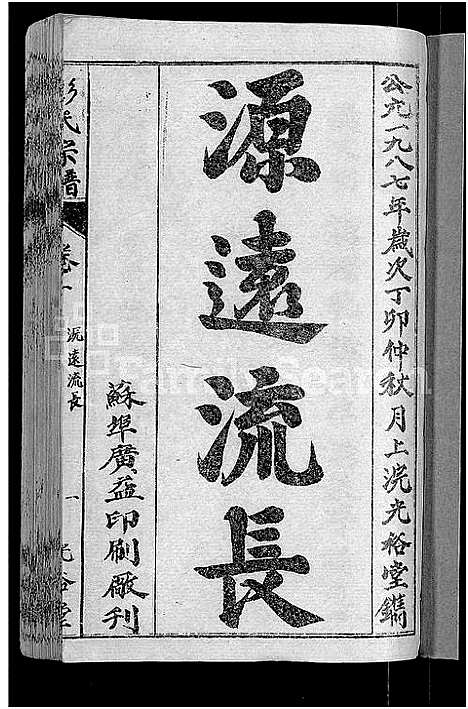 公元一九八七年歲次丁卯仲秋月上浣光裕堂鐫
源遠流長
蘇埠廣益印刷廠刊
彭氏宗譜
卷一
源遠流長
一
光裕堂